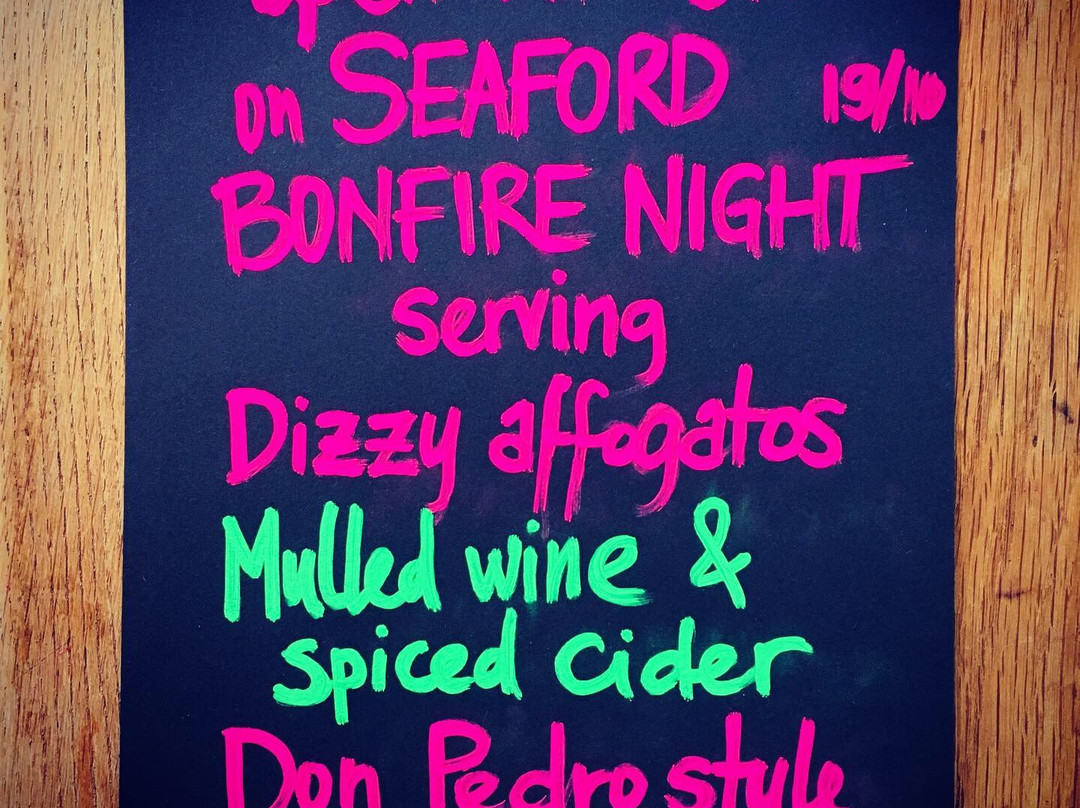 open
on SEAFORD 19/10
BONFIRE NIGHT
serving
Dizzy affogatos
Mulled wine &
spiced cider
Don Pedro style